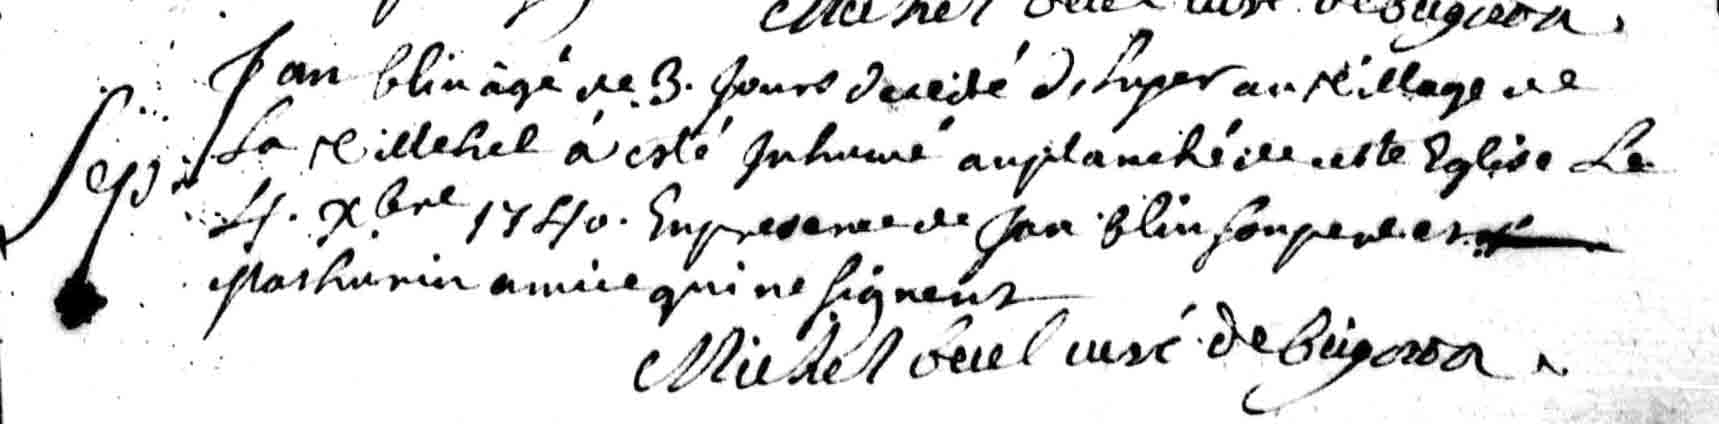 Michel curé de bignon
Jan blin âgé de 3. jours decedé d'hyer au Village de
Sep. La Villehel á esté Inhumé auplanché de cette Eglise Le
4. Xbre 1740. En presence de Jan blin son pere et
Mathurin amice qui ne signent
Michel curé de